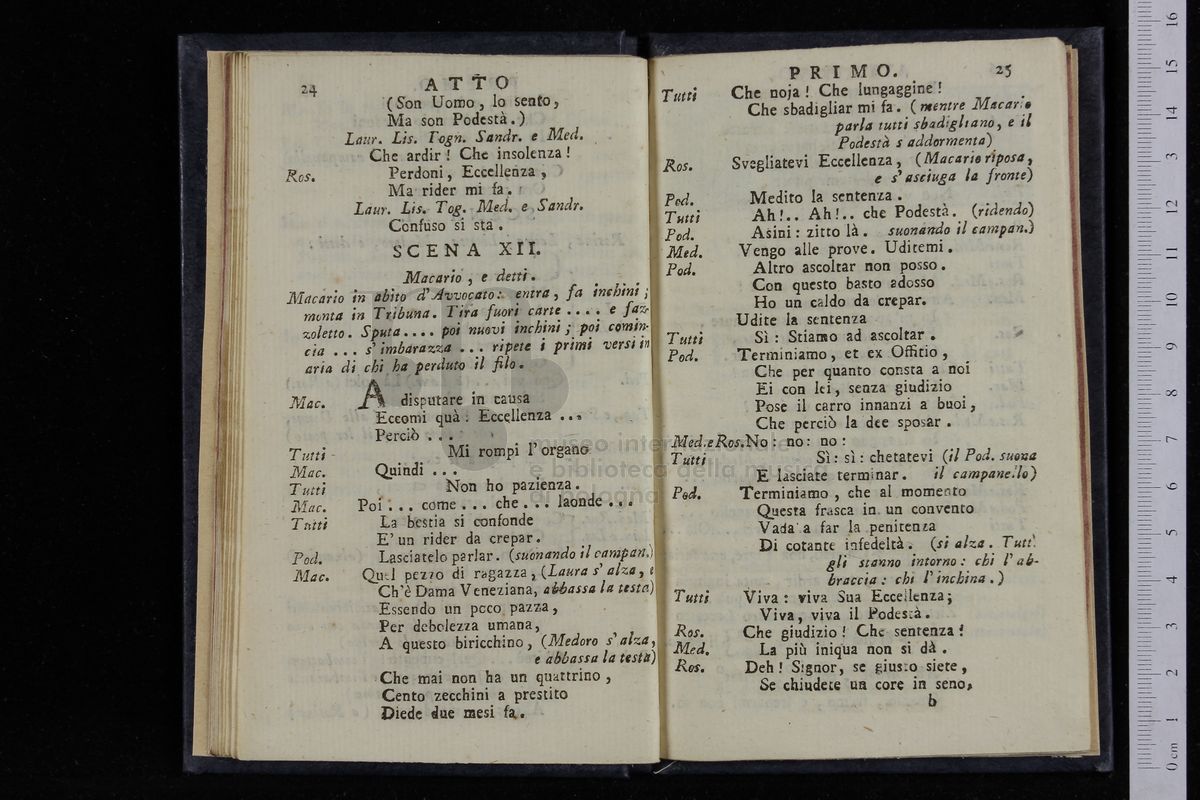 24 ATTO
(Son Uomo, lo sento,
Ma son Podestà.)
Laur. Lis. Togn. Sandr. e Med.
Che ardir! Che insolenza!
Ros. Perdoni, Eccellenza,
Ma rider mi fa.
Laur. Lis. Tog. Med. e Sandr.
Confuso si sta.
SCENA XII.
Macario, e detti.
Macario in abito d'Avvocato: entra, fa inchini;
monta in Tribuna. Tira fuori carte .... e faz-
zoletto. Sputa.... poi nuovi inchini; poi comin-
cia ... s'imbarazza ... ripete i primi versi in
aria di chi ha perduto il filo.
Mac. A disputare in causa
Eccomi quà: Eccellenza ...
Perciò ...
Tutti Mi rompi l'organo
Mac. Quindi ...
Tutti Non ho pazienza.
Mac. Poi ... come ... che ... laonde ...
Tutti La bestia si confonde
E' un rider da crepar.
Pod. Lasciatelo parlar. (suonando il campan.)
Mac. Quel pezzo di ragazza, (Laura s'alza, e
Ch'è Dama Veneziana, abbassa la testa)
Essendo un poco pazza,
Per debolezza umana,
A questo biricchino, (Medoro s'alza,
e abbassa la testa)
Che mai non ha un quattrino,
Cento zecchini a prestito
Diede due mesi fa.
PRIMO. 25
Tutti Che noja! Che lungaggine!
Che sbadigliar mi fa. (mentre Macario
parla tutti sbadigliano, e il
Podestà s addormenta)
Ros. Svegliatevi Eccellenza, (Macario riposa,
e s'asciuga la fronte)
Pod. Medito la sentenza.
Tutti Ah!.. Ah!.. che Podestà. (ridendo)
Pod. Asini: zitto là. suonando il campan.)
Med. Vengo alle prove. Uditemi.
Pod. Altro ascoltar non posso.
Con questo basto adosso
Ho un caldo da crepar.
Udite la sentenza
Tutti Sì: Stiamo ad ascoltar.
Pod. Terminiamo, et ex Offitio,
Che per quanto consta a noi
Ei con lei, senza giudizio
Pose il carro innanzi a buoi,
Che perciò la dee sposar.
Med. e Ros. No: no: no:
Tutti Sì: sì: chetatevi (il Pod. suona
E lasciate terminar. il campanello)
Pod. Terminiamo, che al momento
Questa frasca in un convento
Vada a far la penitenza
Di cotante infedeltà. (si alza. Tutti
gli stanno intorno: chi l'ab-
braccia: chi l'inchina.)
Tutti Viva: viva Sua Eccellenza;
Viva, viva il Podestà.
Ros. Che giudizio! Che sentenza!
Med. La più iniqua non si dà.
Ros. Deh! Signor, se giusto siete,
Se chiudete un core in seno,
b
museo internazionale
e biblioteca della musica
di bologna
0 cm 1 2 3 4 5 6 7 8 9 10 11 12 13 14 15 16